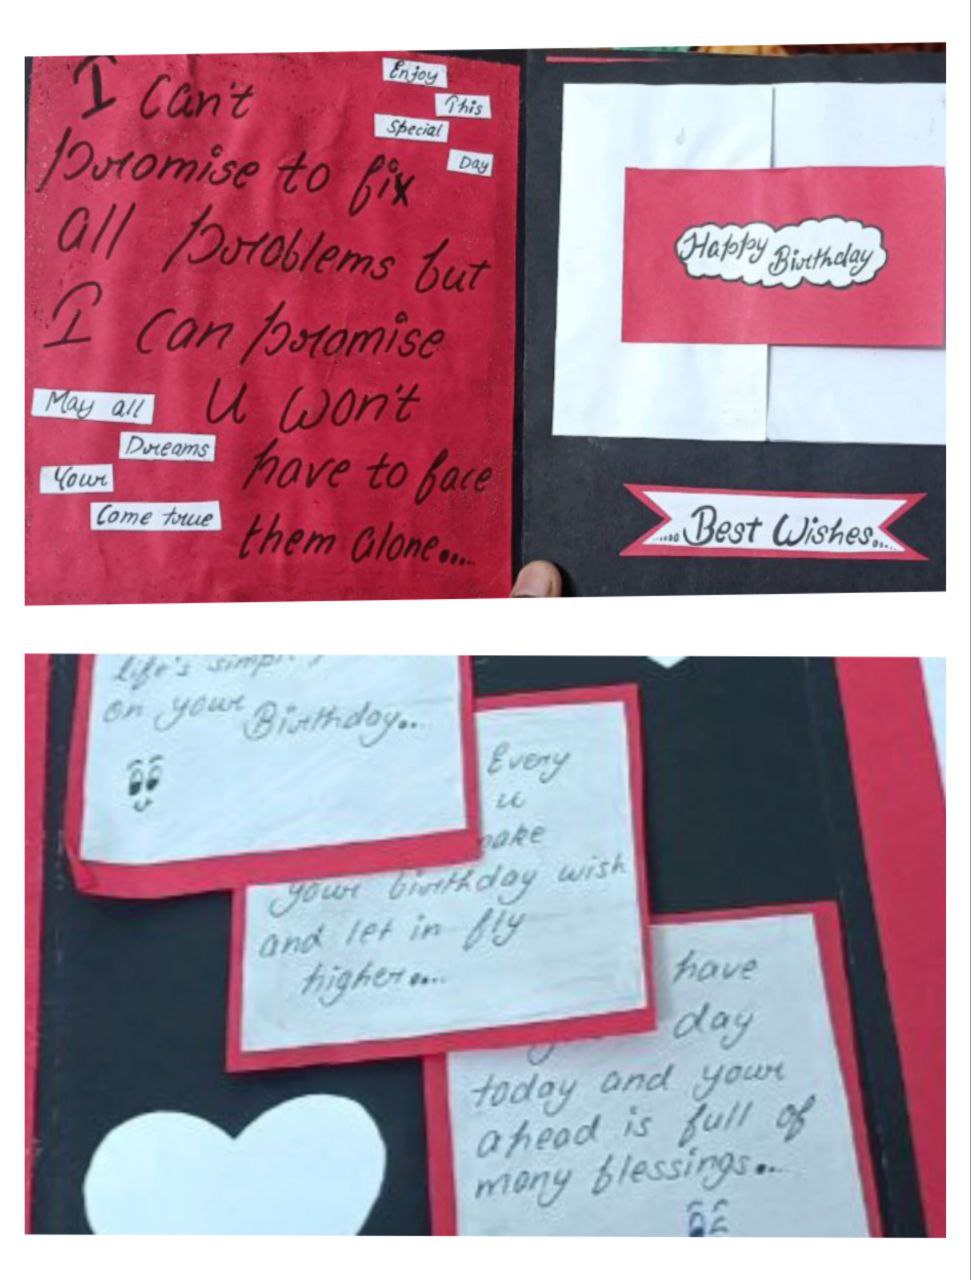 I can't
promise to fix
all problems but
I can promise
u won't
have to face
them alone....
Enjoy
This
Special
Day
May all
Dreams
Your
Come true
Happy Birthday
..... Best Wishes....
life's
on your Birthday...
Every
u
your birthday wish
and let in fly
higher....
have
day
today and your
ahead is full of
many blessings...